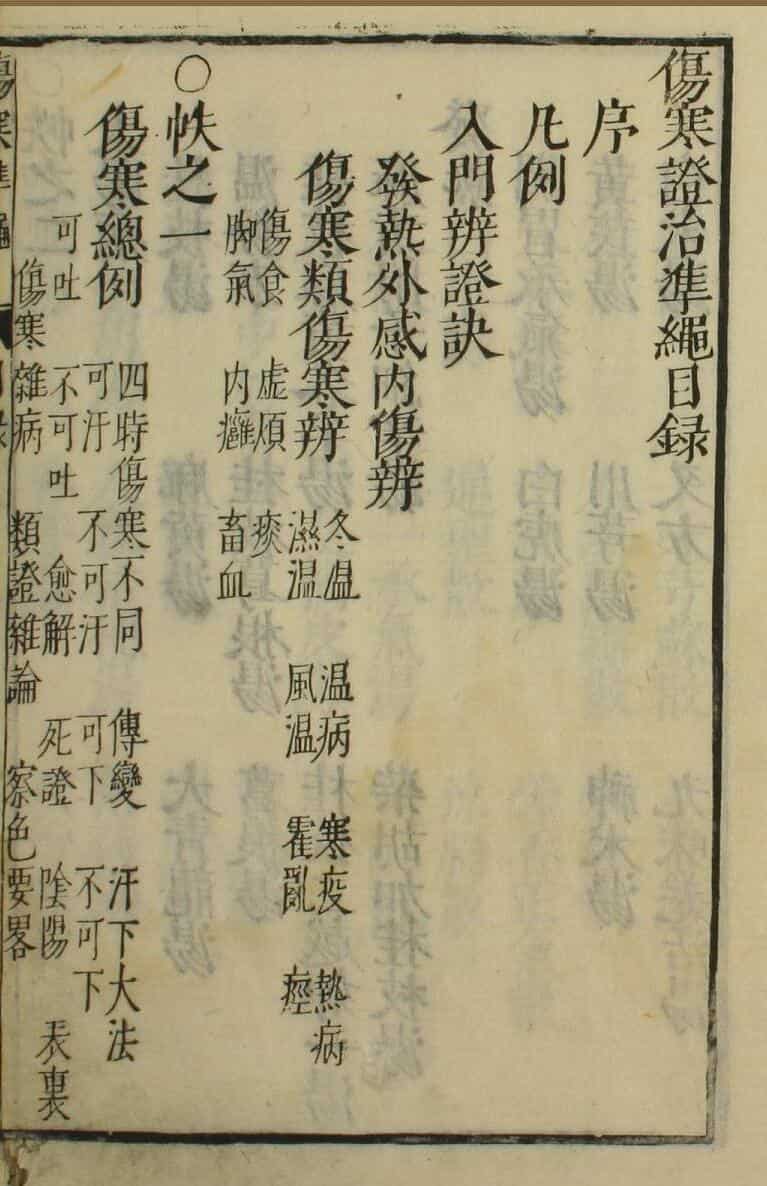 傷寒證治準繩目録
序
凡例
入門辨證訣
發熱外感内傷辨
傷寒類傷寒辨
冬温 温病 寒疫 熱病
濕温 風温 霍亂 痙
傷食 虛煩 痰
脚氣 内癰 畜血
○帙之一
傷寒總例
四時傷寒不同 傳變 汗下大法
可汗 不可汗 可下 不可下
可吐 不可吐 愈解 死證 陰陽 表裏
傷寒雜病 類證雜論 察色要畧